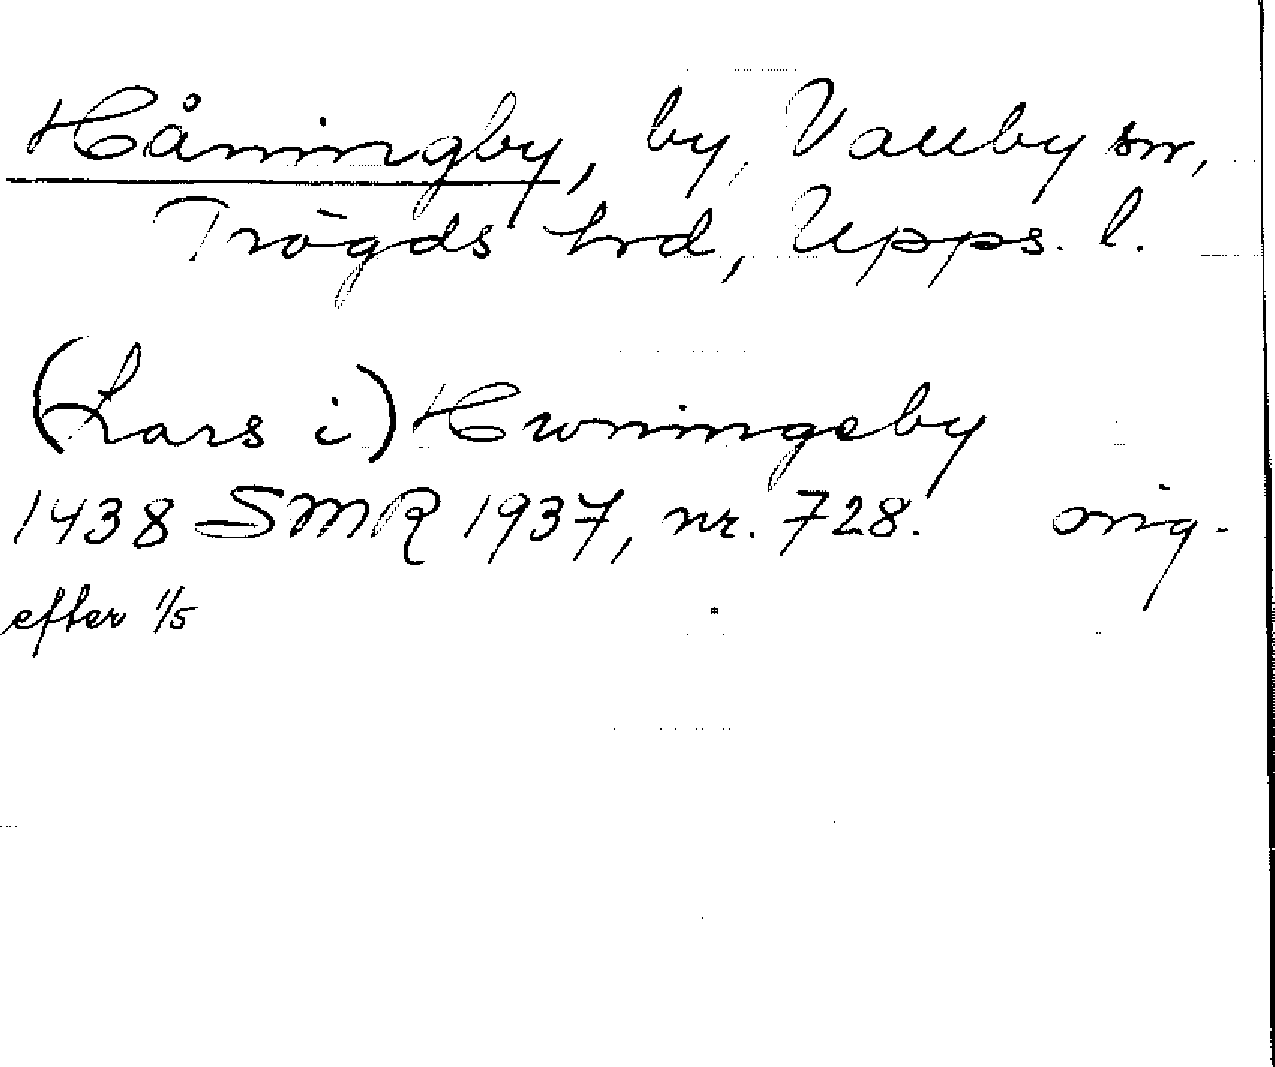 Håningby, by, Vallby sn,
Trögds hrd, Upps. l.
(Lars i) Hwningeby
1438 SMR 1937, nr. 728. orig.
efter 1/5